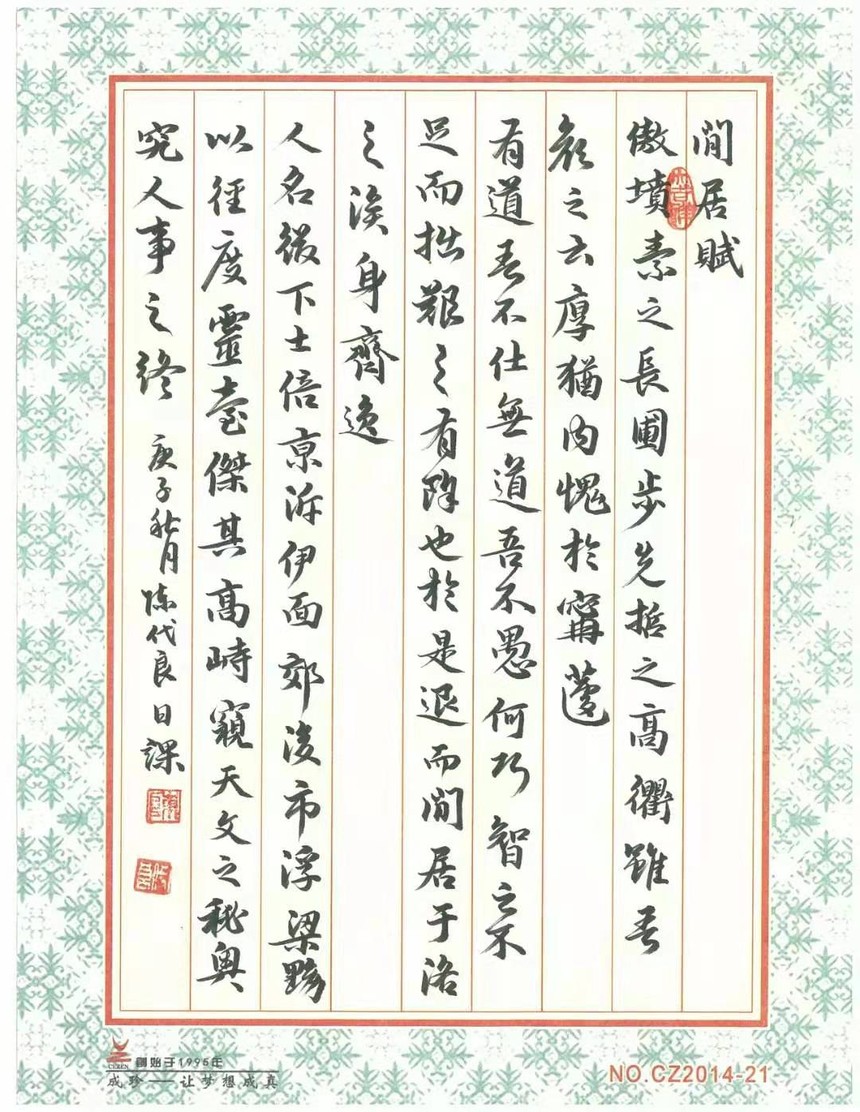 閒居賦
傲墳素之長圃步先哲之高衢雖吾
顏之云厚猶内愧於甯蘧
有道吾不仕無道吾不愚何巧智之不
足而拙艱之有餘也於是退而閒居于洛
之涘身齊逸
人名綴下士倍京泝伊面郊後市浮梁黝
以徑度靈臺傑其高峙窺天文之秘奥
究人事之終 庚子秋月陳代良日課
創始于1996年
成珍——让梦想成真
NO.CZ2014-21